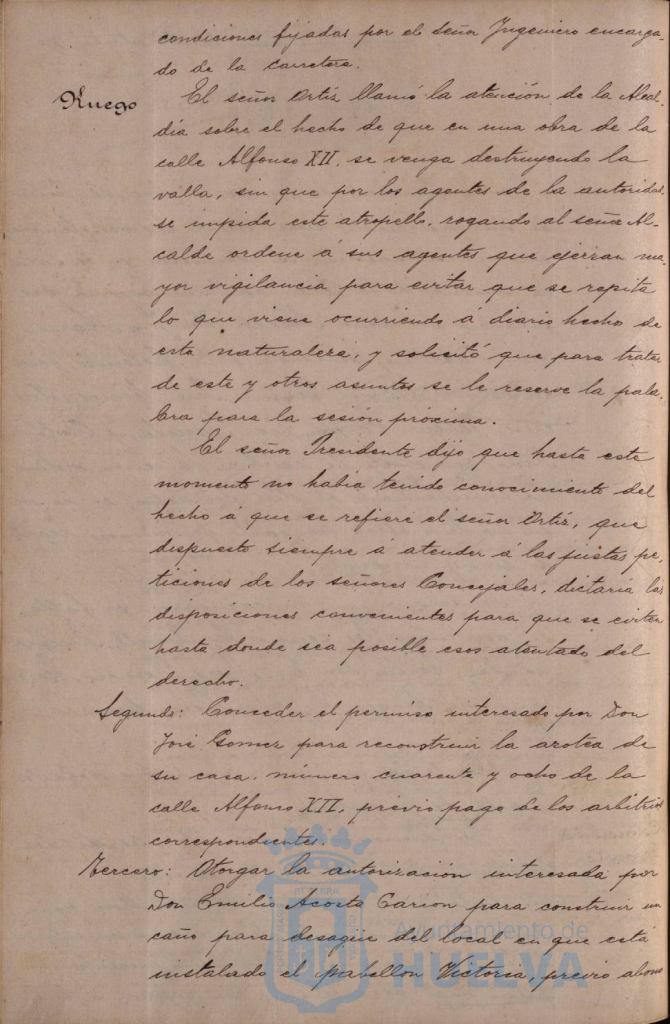 condiciones fijadas por el señor Ingeniero encarga-
do de la carretera.
Ruego
El señor Ortiz llamó la atención de la Alcal-
dia sobre el hecho de que en una obra de la
calle Alfonso XII, se venga destruyendo la
valla, sin que por los agentes de la autoridad
se impida este atropello, rogando al señor Al-
calde ordene á sus agentes que ejerzan ma-
yor vigilancia para evitar que se repita
lo que viene ocurriendo á diario hecho de
esta naturaleza, y solicitó que para tratar
de este y otros asuntos se le reserve la pala-
bra para la sesión próxima.
El señor Presidente dijo que hasta este
momento no habia tenido conocimiento del
hecho á que se refiere el señor Ortiz, que
dispuesto siempre á atender á las justas pe-
ticiones de los señores Concejales, dictaria las
disposiciones convenientes para que se eviten
hasta donde sea posible esos atentado del
derecho.
Segundo: Conceder el permiso interesado por Don
José Gomez para reconstruir la azotea de
su casa, número cuarenta y ocho de la
calle Alfonso XII, previo pago de los arbitrios
correspondientes.
Tercero: Otorgar la autorización interesada por
Don Emilio Acosta Carion para construir un
caño para desagüe del local en que está
instalado el pabellon Victoria, previo abono
Ayuntamiento de
HUELVA